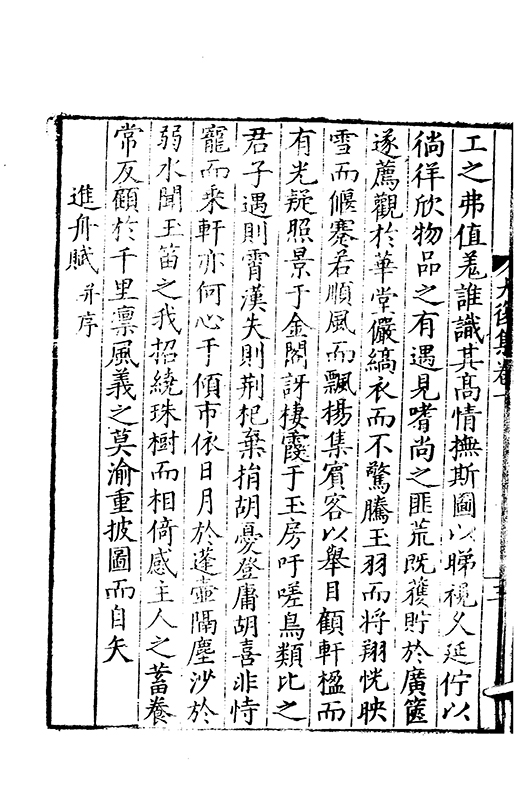 工之弗值羌誰識其高情撫斯圖以睇視久延佇以
徜徉欣物品之有遇見嗜尚之匪荒既獲貯於廣篋
遂薦觀於華堂儼縞衣而不驚騰玉羽而将翔恍映
雪而偃蹇若順風而飄楊集賓客以舉目顧軒楹而
有光疑照景于金閣訝棲霞于玉房吁嗟鳥類比之
君子遇則霄漢失則荆杞棄捐胡憂登庸胡喜非恃
寵而乗軒亦何心于傾市依日月於蓬壷隔塵沙於
弱水聞玉笛之我招繞珠樹而相倚感主人之蓄養
常反顧於千里禀風義之莫渝重披圖而自矢
進舟賦并序
後集卷一